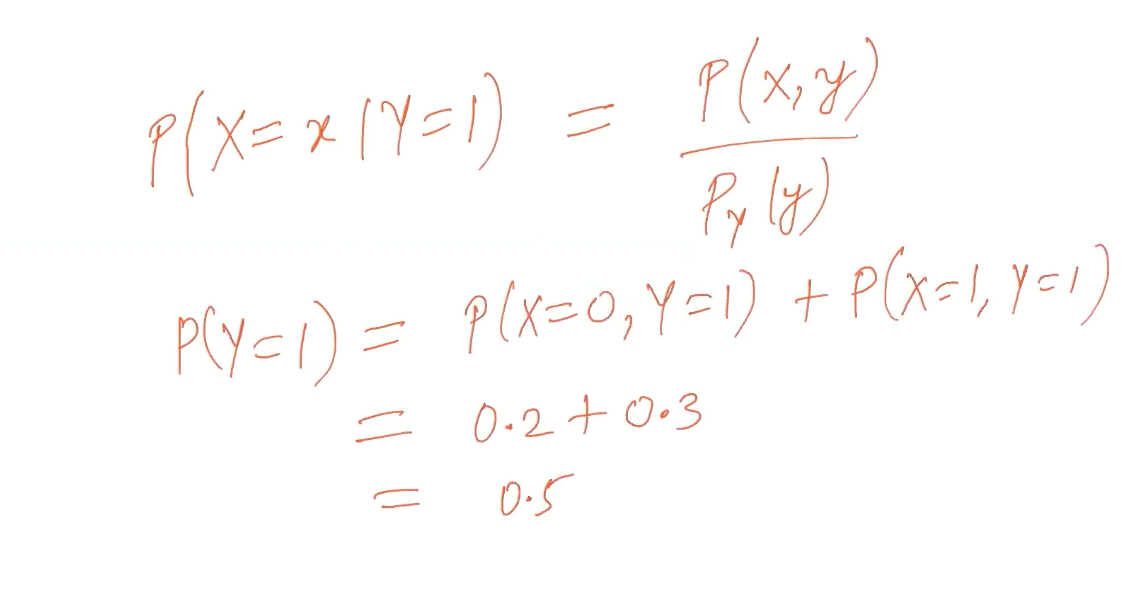 P(X=x|Y=1) = P(x,y) / P_Y(y)
P(Y=1) = P(X=0, Y=1) + P(X=1, Y=1)
= 0.2 + 0.3
= 0.5